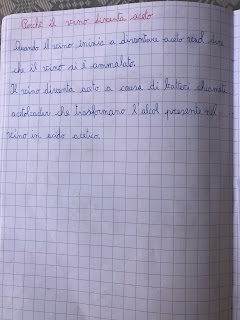 Perché il vino diventa aceto
Quando il vino inizia a diventare aceto vuol dire
che il vino si è ammalato.
Il vino diventa aceto a causa di batteri chiamati
acetobacter che trasformano l'alcol presente nel
vino in acido acetico.